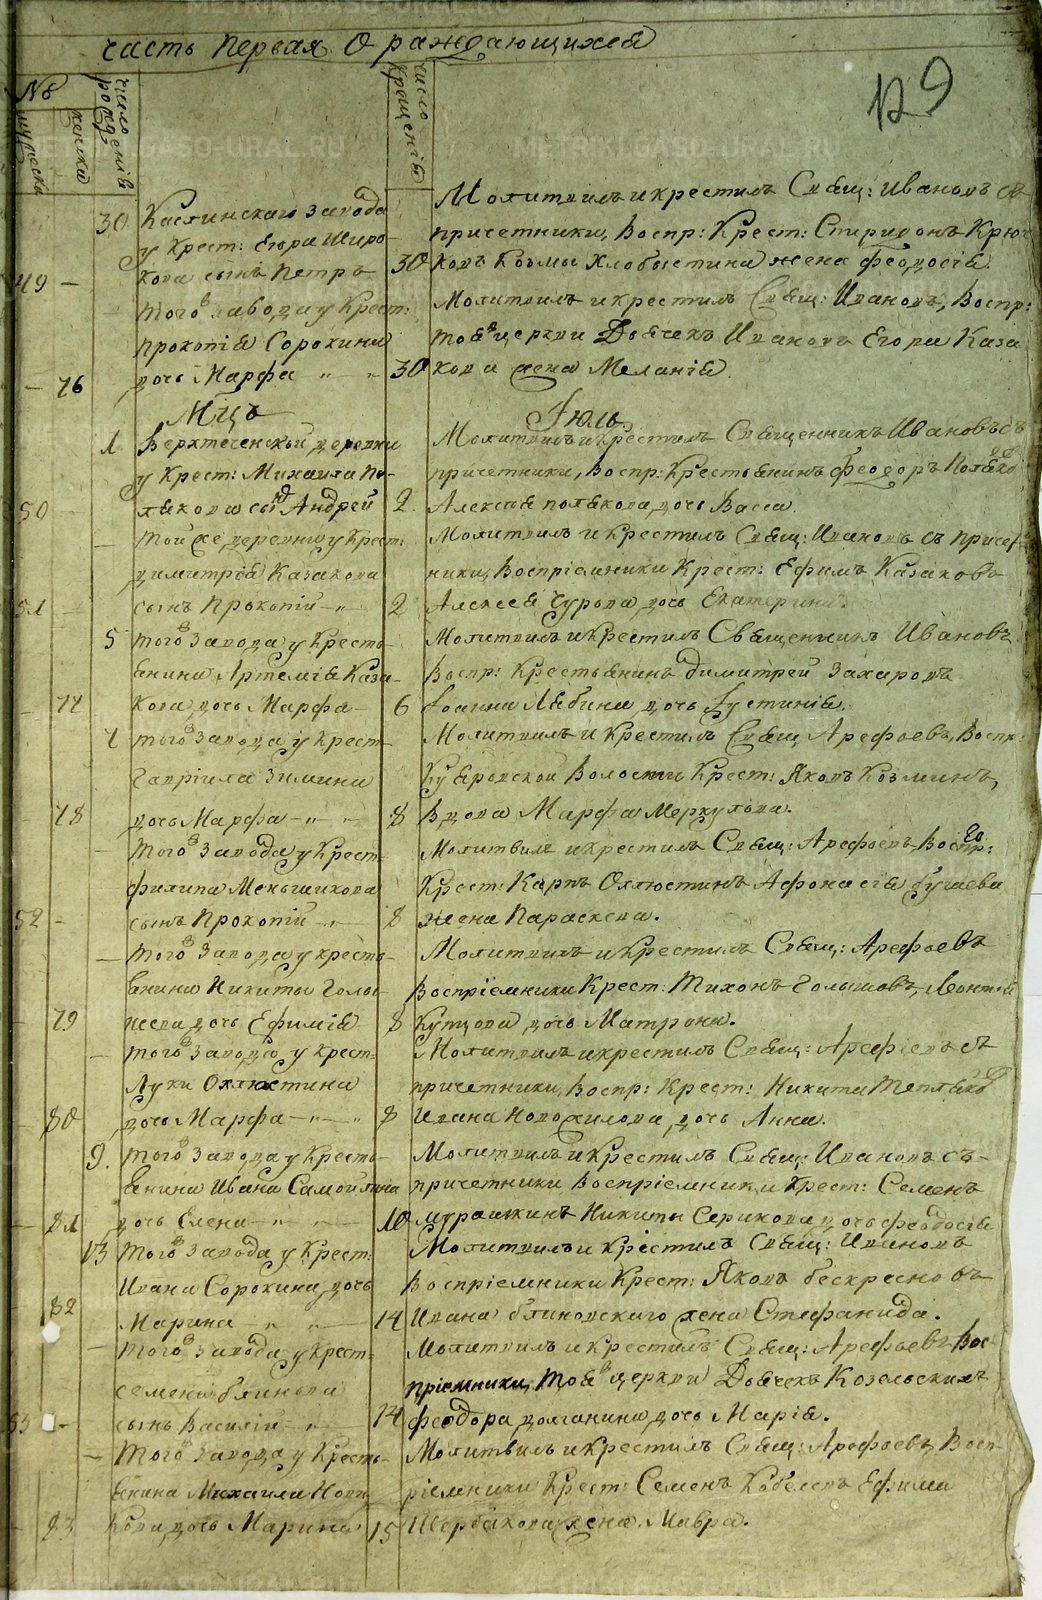 часть первая О раждающихся
129
№
мужеска
женска
число рожденія
число крещенія
30 Каслинскаго завода
у Крест: Егора Широ-
49 – кова сынъ Петръ 30
Молитвилъ и крестилъ Свящ: Ивановъ съ
причетники, Воспр: Крест: Спиридонъ Крюч
ковъ Козмы Хлобыстина жена Феодосія.
– того завода у Крест:
Прокопія Сорокина
– 76 дочь Марфа „ „ 30
Молитвилъ и крестилъ Свящ: Ивановъ, Воспр:
тоя церкви Дьячекъ Иванъ Егора Каза
кова жена Меланія.
Мцъ Іюль.
1 Верхтеченской деревни
у Крест: Михаила По-
50 – лякова сынъ Андрей 2
Молитвилъ и крестилъ Священникъ Ивановъ съ
причетники, Воспр: Крестьянинъ Феодоръ Поляко
Алексея полякова дочь Васса.
– той же деревни у Крест:
димитрія Казакова
51 – сынъ Прокопій – „ – 2
Молитвилъ и крестилъ Свящ: Ивановъ съ причет
ники, Воспріемники Крест: Ефимъ Казаковъ
Алексея Чурова дочь Екатерина.
5 того завода у Кресть-
янина Артемія Каза-
– 77 кова дочь Марфа – 6
Молитвилъ и крестилъ Священникъ Ивановъ
Воспр: Крестьянинъ димитрей Захаровъ
Іоанна Лябина дочь Іустинія.
7 того завода у Крест-
Гавріила Зимина
– 78 дочь Марфа – „ – „ 8
Молитвилъ и крестилъ Свящ: Арефьевъ, Воспр:
Куяровской Волости Крест: Яковъ Козминъ,
Вдова Марфа Меркульва.
– того завода у Крест-
филипа Меньшикова
52 – сынъ Прокопій – „ – 8
Молитвилъ и крестилъ Свящ: Арефьевъ Воспр:
Крест: Карпъ Охлюстинъ Афонасія Гущева
жена Параскева.
– того завода у кресть-
янина Никиты Голы-
– 79 шева дочь Ефимія 8
Молитвилъ и крестилъ Свящ: Арефьевъ
Воспріемники Крест: Тихонъ Голышовъ, Леонтія
Купцова дочь Матрона.
– того завода у крест-
Луки Охлюстина
– 80 дочь Марфа – „ – „ 8
Молитвилъ и крестилъ Свящ: Арефьевъ съ
причетники, Воспр: Крест: Никита Тепляко
Ивана Новожилова, дочь Анна.
9. того завода у Кресть-
янина Ивана Самойлина
– 81 дочь Елена – „ – 10
Молитвилъ и Крестилъ Свящ: Ивановъ съ-
причетники Воспріемники Крест: Семенъ
Мурашкинъ Никиты Серикова дочь Феодосія
13 того завода у Крест:
Ивана Сорокина, дочь
– 82 Марина – „ – „ – 14
Молитвилъ и Крестилъ Свящ: Ивановъ
Воспріемники Крест: Яковъ бескресновъ
Ивана блиновскаго жена Стефанида.
– того завода у крест-
семена блинова
53 – сынъ Василій – „ – 14
Молитвилъ и крестилъ Свящ: Арефьевъ Вос-
пріемники, тоя церкви Дьячекъ Козельскихъ
феодора долганина дочь Марія.
– того завода у Кресть-
янина Михаила Нови
– 83 кова, дочь Марина 15
Молитвилъ и Крестилъ Свящ: Арефьевъ, Восп-
ріемники Крест: Семенъ Кобелевъ Ефима
Щербакова жена Мавра.
METRIKI.GASO-URAL.RU